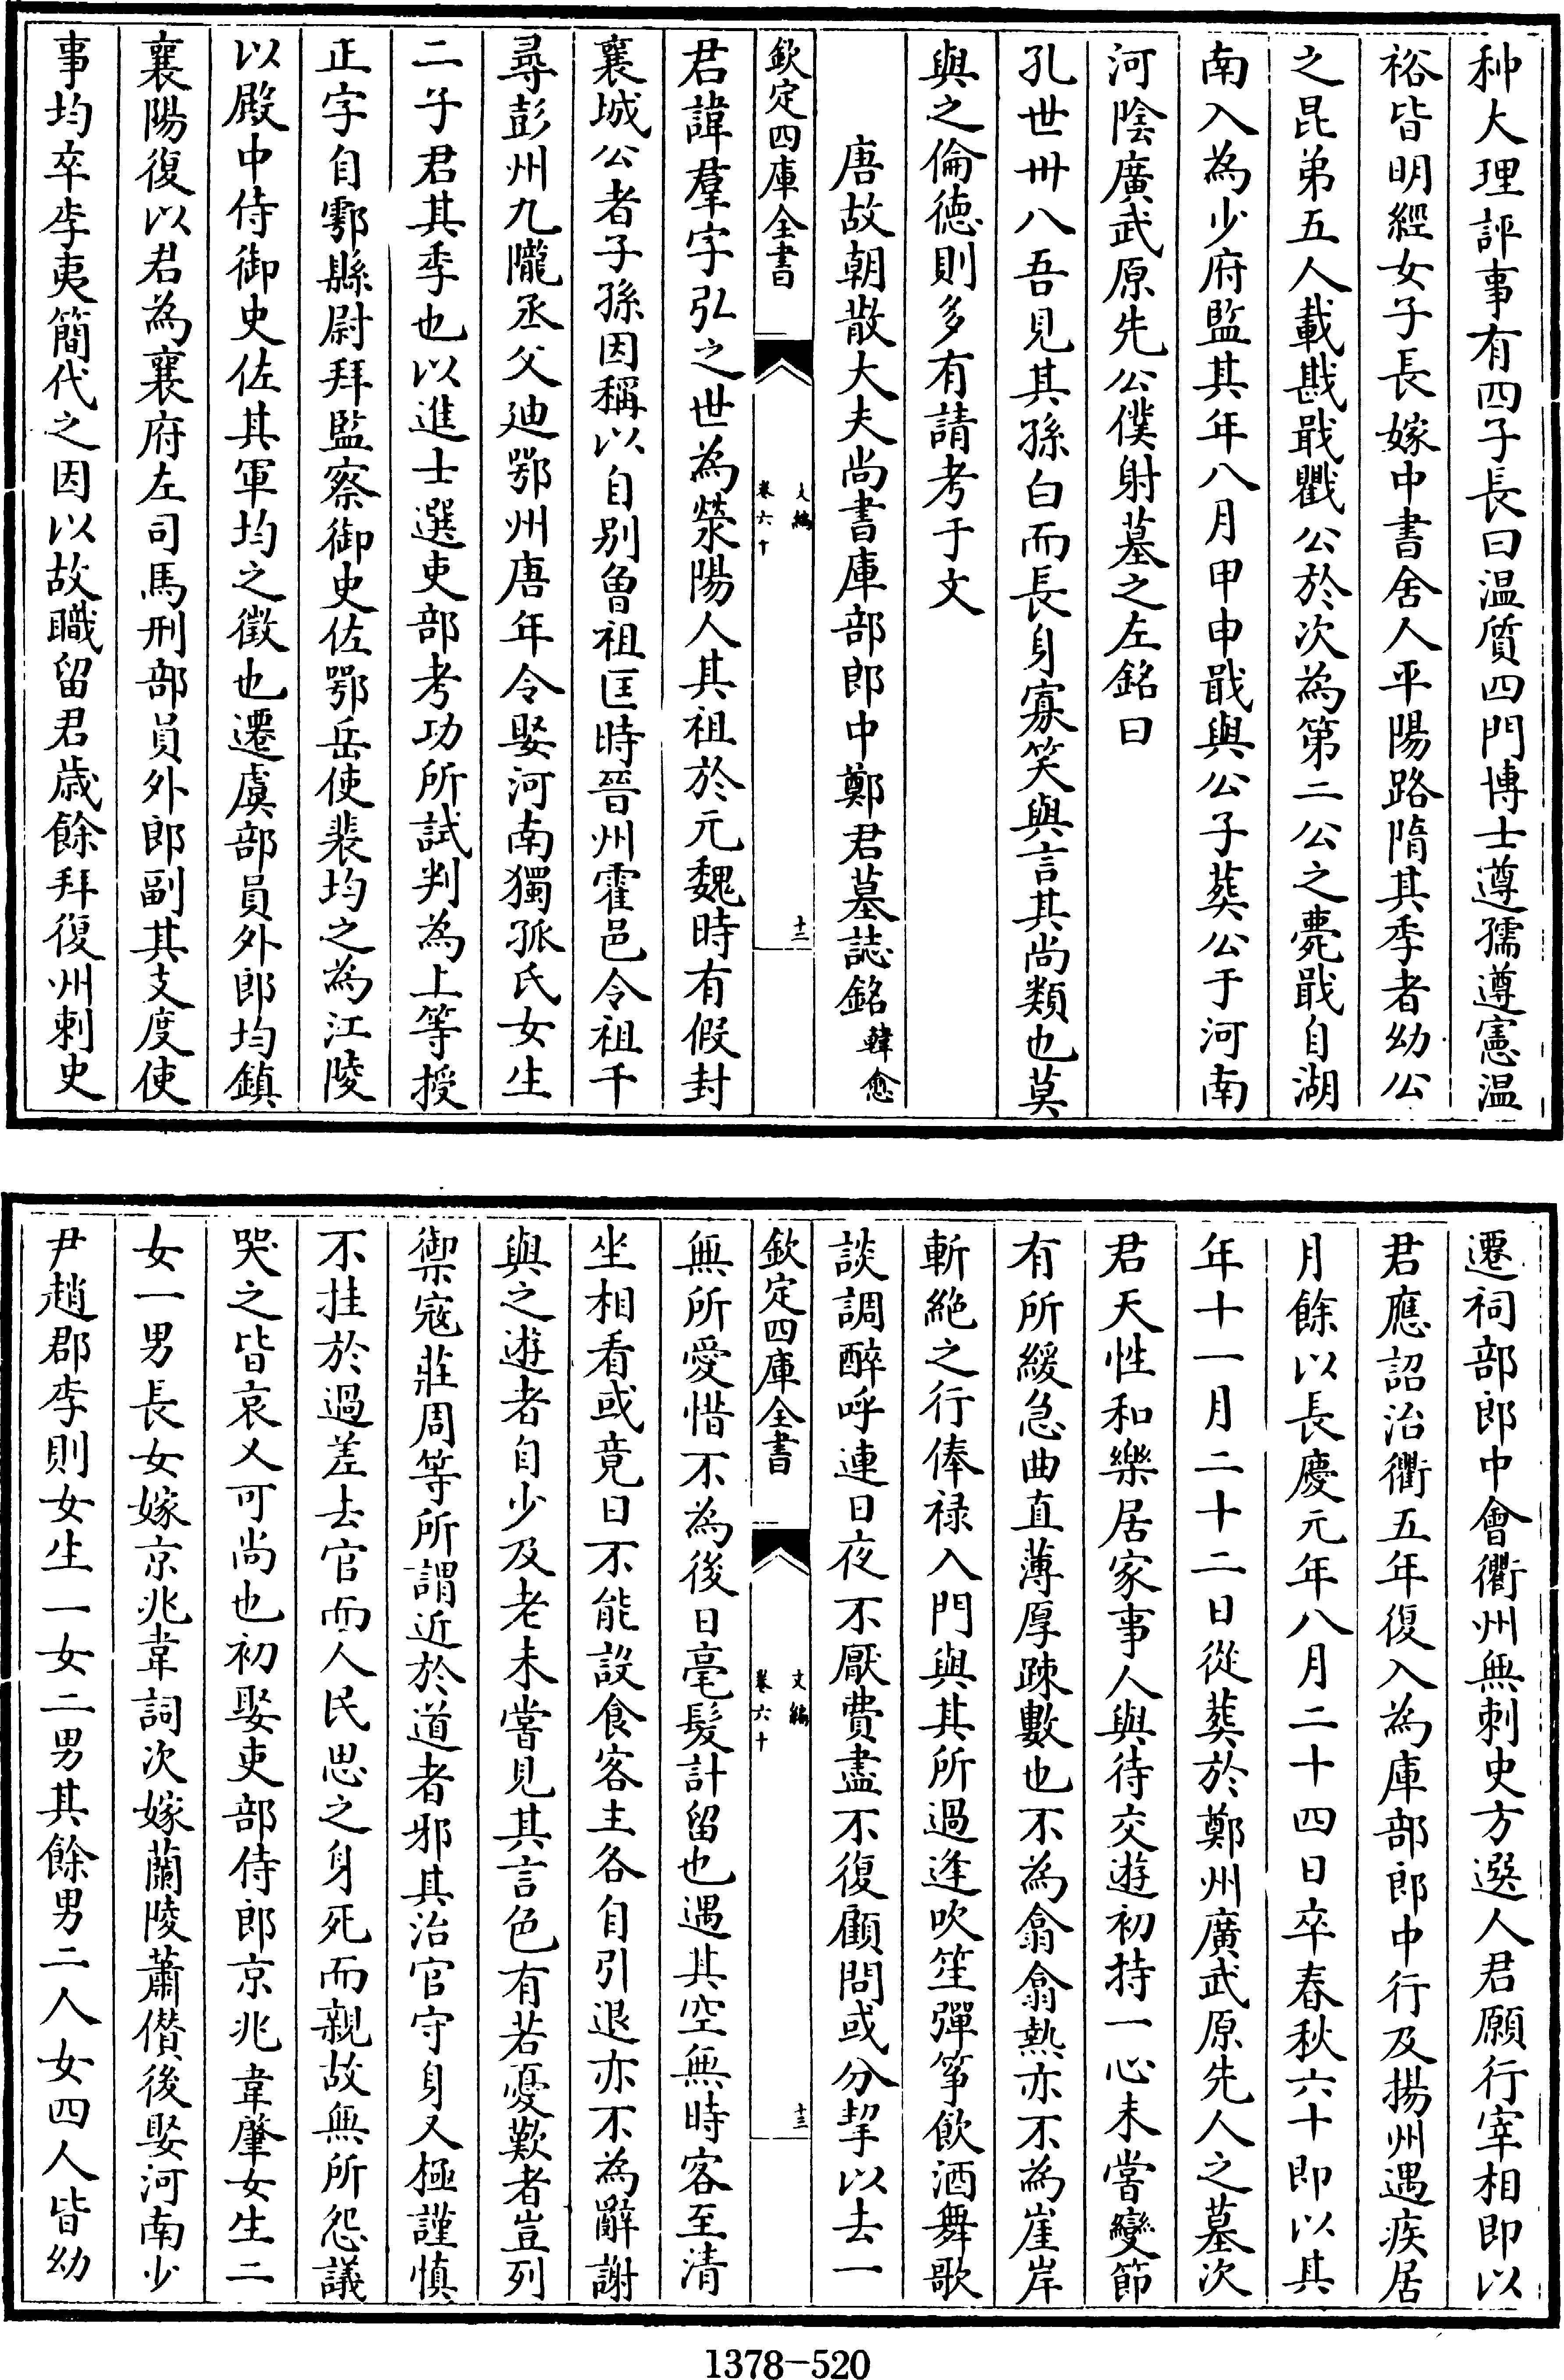 种大理評事有四子長曰温質四門博士遵孺遵憲温
裕皆明經女子長嫁中書舍人平陽路隋其季者幼公
之昆弟五人載戡戢戵公於次為第二公之薨戢自湖
南入為少府監其年八月甲申戢與公子葬公于河南
河陰廣武原先公僕射墓之左銘曰
孔世卅八吾見其孫白而長身寡笑與言其尚類也莫
與之倫德則多有請考于文
唐故朝散大夫尚書庫部郎中鄭君墓誌銘韓愈
欽定四庫全書
文編
卷六十
十二
君諱羣字弘之世為滎陽人其祖於元魏時有假封
襄城公者子孫因稱以自别曾祖匡時晉州霍邑令祖千
尋彭州九隴丞父廸鄂州唐年令娶河南獨孤氏女生
二子君其季也以進士選吏部考功所試判為上等授
正字自鄠縣尉拜監察御史佐鄂岳使裴均之為江陵
以殿中侍御史佐其軍均之徵也遷虞部員外郎均鎮
襄陽復以君為襄府左司馬刑部員外郎副其支度使
事均卒李夷簡代之因以故職留君歳餘拜復州刺史
遷祠部郎中會衢州無刺史方選人君願行宰相即以
君應詔治衢五年復入為庫部郎中行及揚州遇疾居
月餘以長慶元年八月二十四日卒春秋六十即以其
年十一月二十二日從葬於鄭州廣武原先人之墓次
君天性和樂居家事人與待交遊初持一心未嘗變節
有所緩急曲直薄厚疎數也不為翕翕熱亦不為崖岸
斬絶之行俸禄入門與其所過逢吹笙彈筝飲酒舞歌
談調醉呼連日夜不厭費盡不復顧問或分挈以去一
欽定四庫全書
文編
卷六十
十三
無所愛惜不為後日毫髪計留也遇其空無時客至清
坐相看或竟日不能設食客主各自引退亦不為辭謝
與之遊者自少及老未嘗見其言色有若憂歎者豈列
禦寇莊周等所謂近於道者邪其治官守身又極謹慎
不挂於過差去官而人民思之身死而親故無所怨議
哭之皆哀又可尚也初娶吏部侍郎京兆韋肇女生二
女一男長女嫁京兆韋詞次嫁蘭陵蕭儧後娶河南少
尹趙郡李則女生一女二男其餘男二人女四人皆幼
1378-520